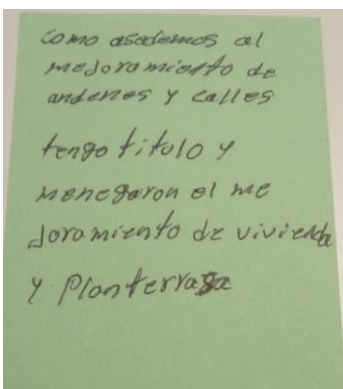 como asedemos al
mejoramiento de
andenes y calles
tengo titulo y
menegaron el me
joramiento de vivienda
y Planterraza